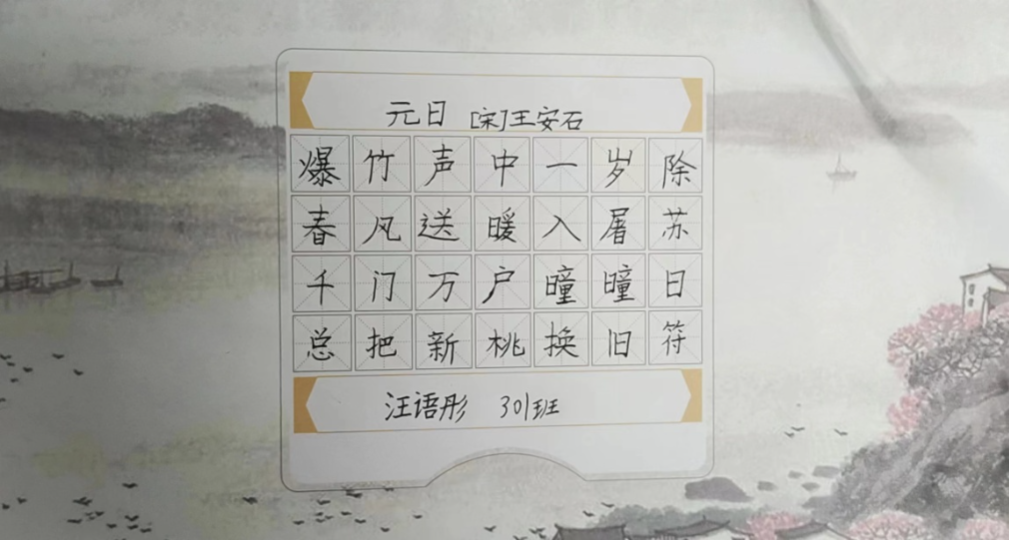 元日 [宋]王安石
爆竹声中一岁除
春风送暖入屠苏
千门万户曈曈日
总把新桃换旧符
汪语彤 301班